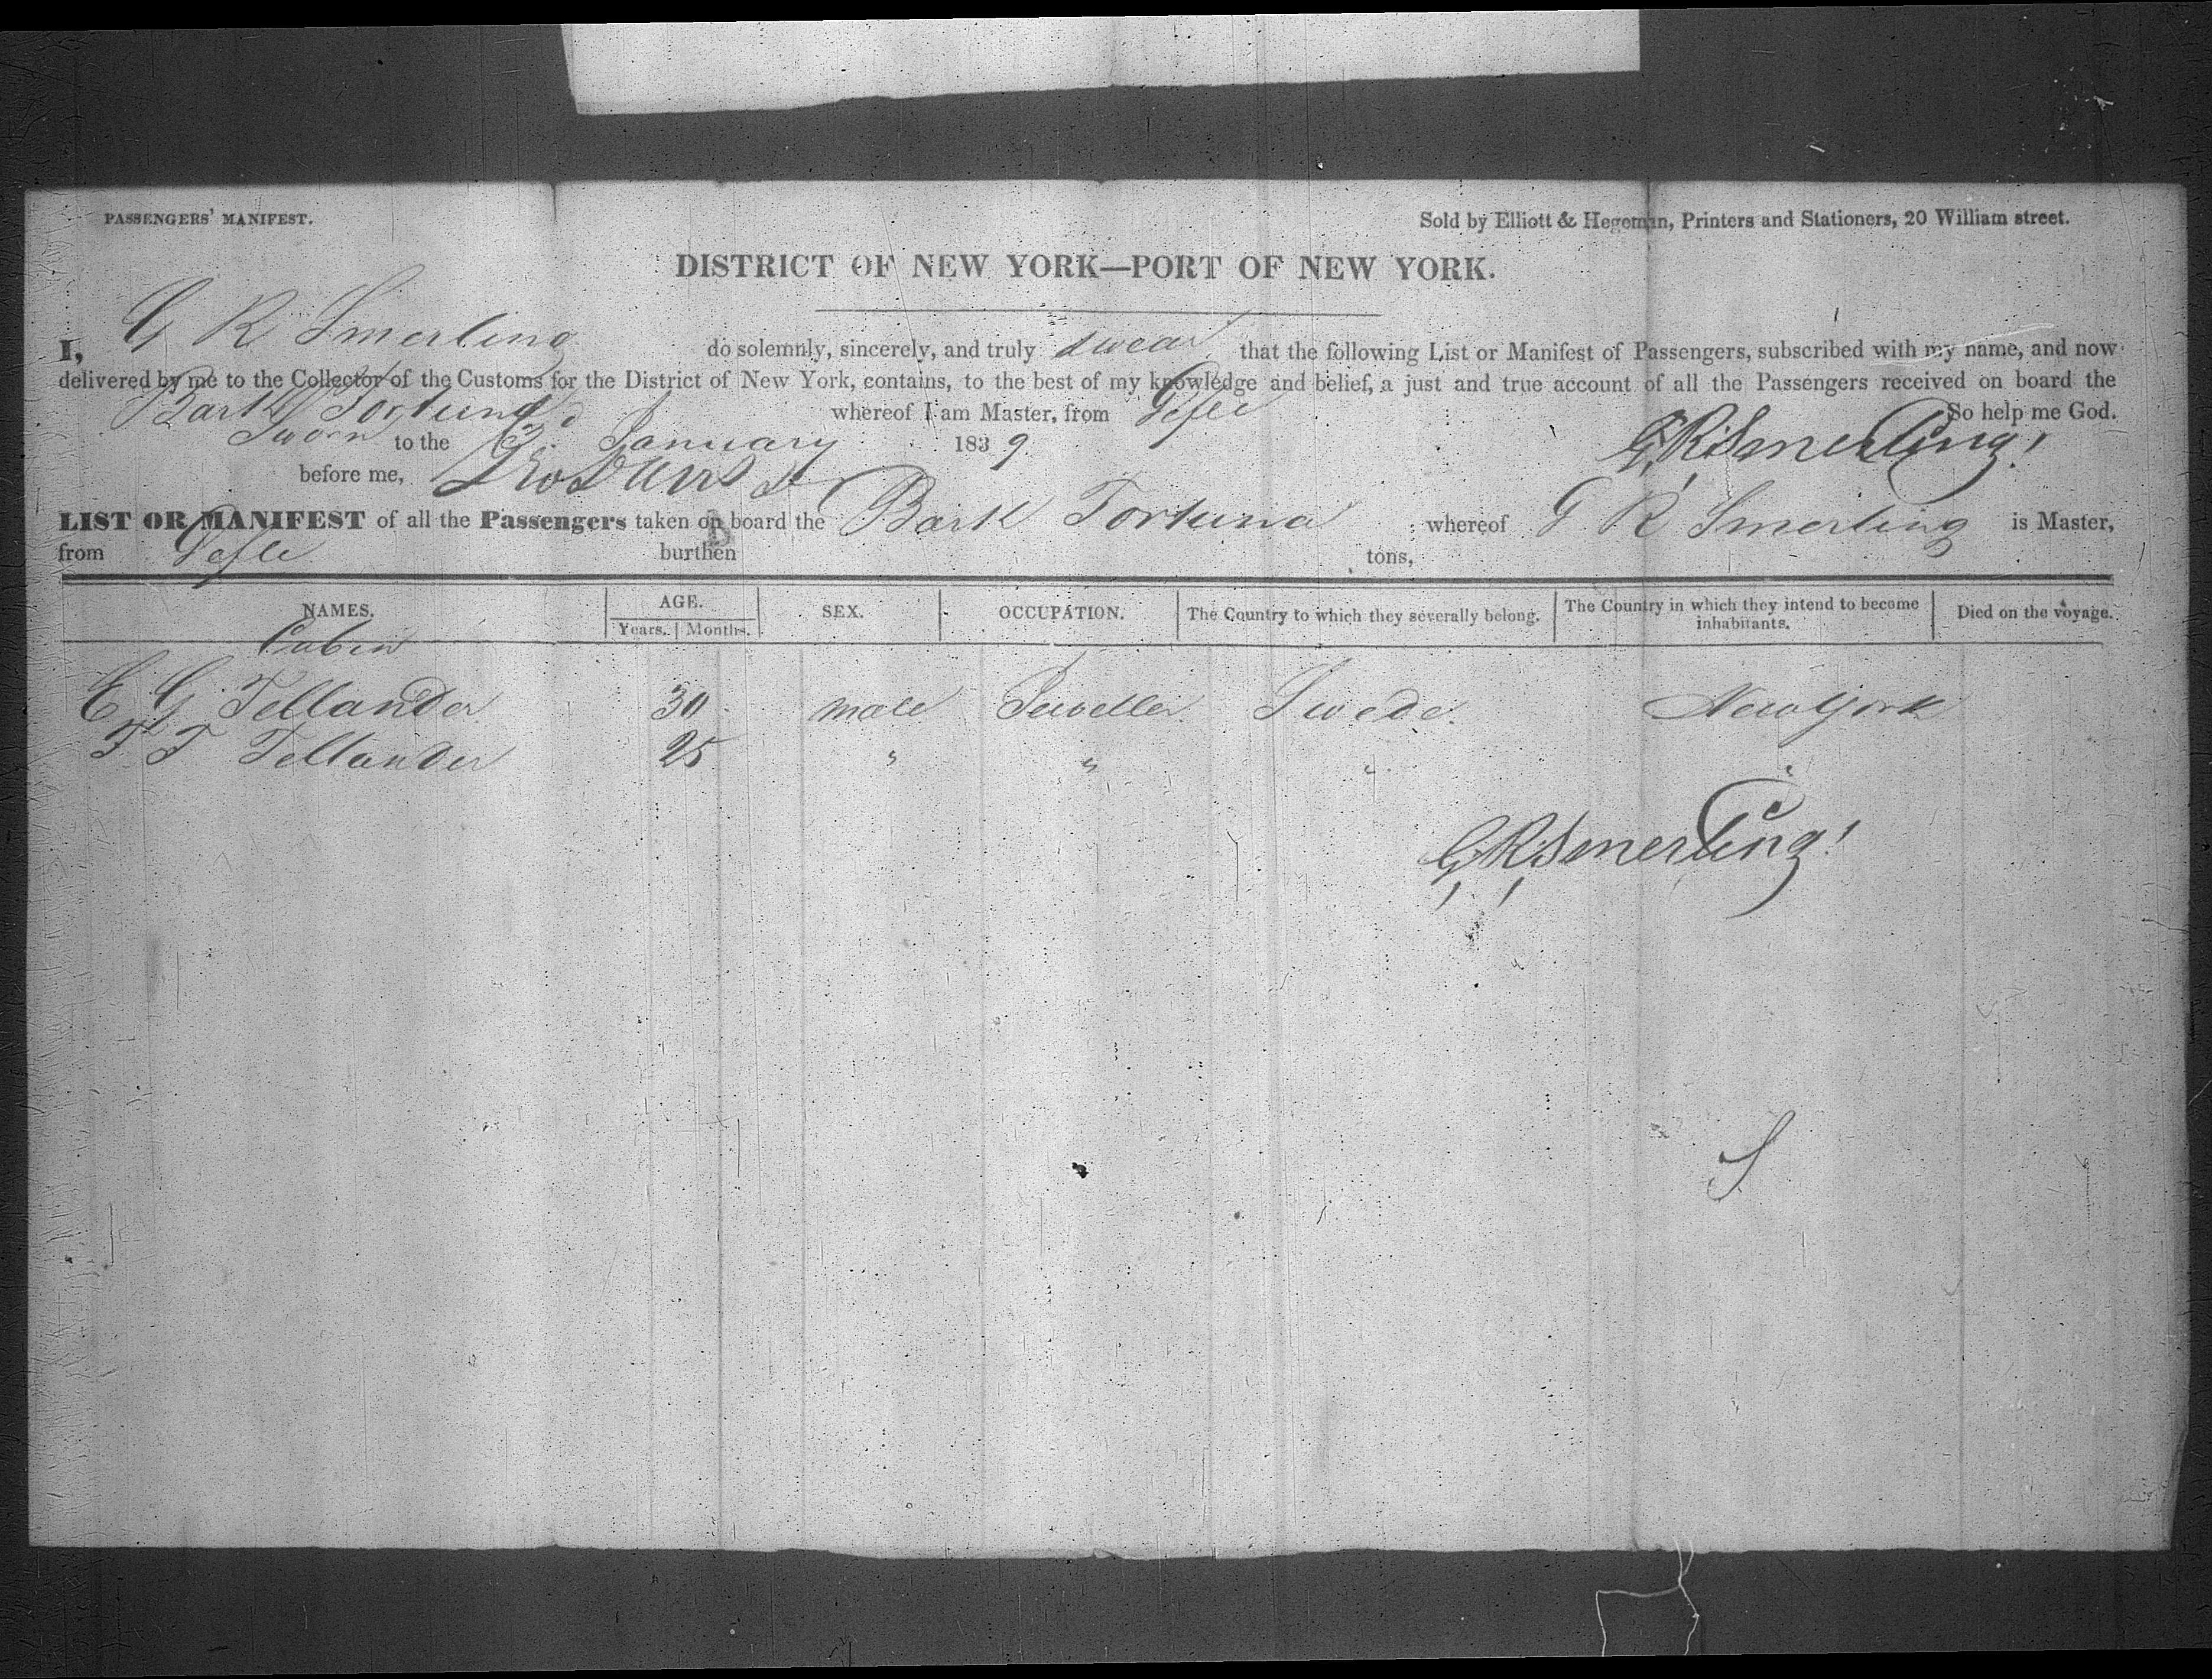 PASSENGERS' MANIFEST.
Sold by Elliott & Hegeman, Printers and Stationers, 20 William street.
DISTRICT OF NEW YORK—PORT OF NEW YORK.
I, G R Smerling do solemnly, sincerely, and truly swear that the following List or Manifest of Passengers, subscribed with my name, and now
delivered by me to the Collector of the Customs for the District of New York, contains, to the best of my knowledge and belief, a just and true account of all the Passengers received on board the
Bark Fortuna whereof I am Master, from Gefle So help me God.
Sworn to the January 1839 GRSmerling
before me,
LIST OR MANIFEST of all the Passengers taken on board the Bark Fortuna whereof G R Smerling is Master,
from Gefle burthen tons,
NAMES. AGE. SEX. OCCUPATION. The Country to which they severally belong. The Country in which they intend to become inhabitants. Died on the voyage.
Years. Months.
Cabin
E G Tellander 30 male Jeweller Swede New York
F F Tellander 25 " " " "
GRSmerling
S